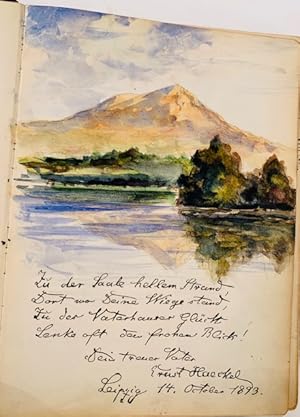 Zu der Saale hellem Strand
Dort wo Deine Wiege stand
Zu der Vaterhauses Glück
Lenke oft den frohen Blick!
Dein treuer Vater
Ernst Haeckel
Leipzig 14. October 1893.